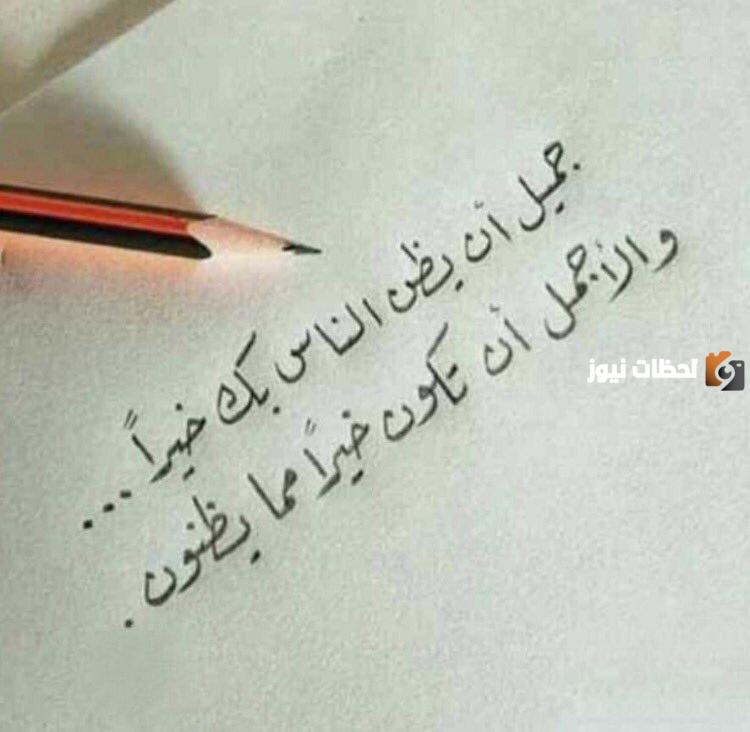 جميل أن يظن الناس بك خيراً...
والأجمل أن تكون خيراً مما يظنون.
لحظات نيوز